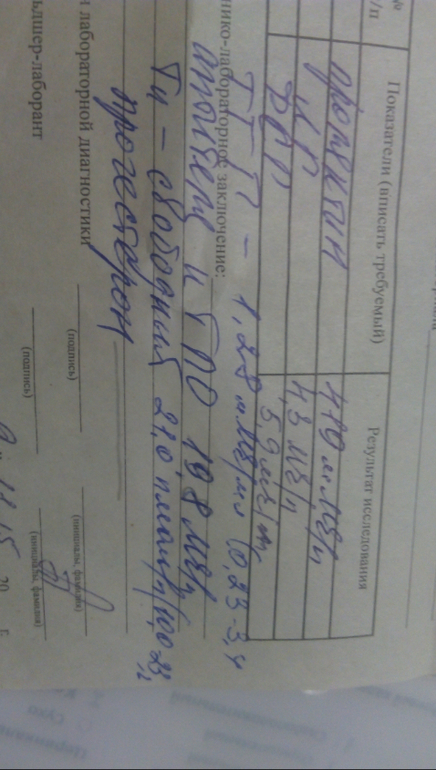 №
п/п
Показатели (вписать требуемый)
Результат исследования
пролактин
410 мМЕ/л
4,3 МЕ/л
5,9
нико-лабораторное заключение:
ТТГ - 1,28 мМЕ/мл (0,23-3,4
антитела к ТПО 198 МЕ/л
Т4 - свободный 21,0 пмоль/л (10,0-23,2
прогестерон
и лабораторной диагностики
(подпись)
(инициалы, фамилия)
льдшер-лаборант
(подпись)
(инициалы, фамилия)
11 15
20
г.